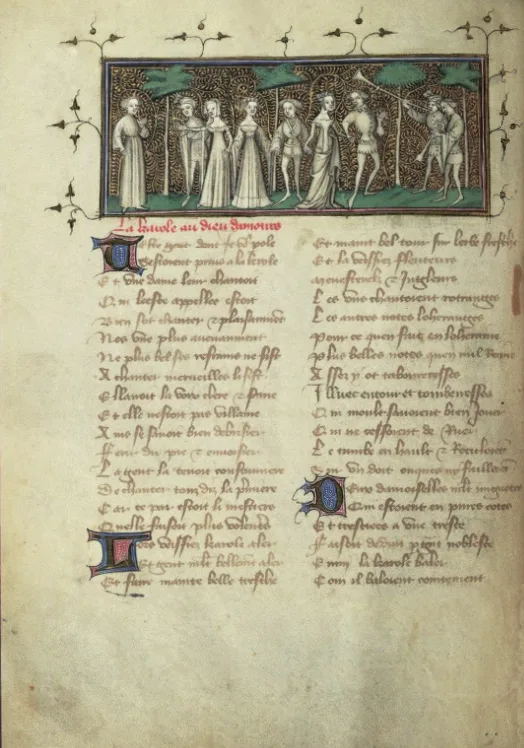 La karole au dieu damours
Ceste gent dont je vo9 pole
Sestoient prins a la kerole
Et vne dame leur chantoit
Qui leesce appellee estoit
Bien sot chanter & plaisanment
Ne nus plus auenanment
Ne plus bel ses refrains ne fist
A chanter merueilles li sist
Et lauoit la voix clere & saine
Et elle nestoit pas villaine
Ains se sauoit bien debrisier
Ferir du pie & enuoisier
La gent la tenoit coustumiere
De chanter tom dis la premiere
Car ce par estoit li mestiers
Quelle faisoit plus volentiers
Lors veissiez karole aler
Et gent mlt bellement aler
Et faire mainte belle tresche
Et maint bel tour sur lerbe fresche
Et la veissiez fleuteurs
Menestrelz & jugleurs
Les vns chantoient rotruenges
Les autres notes loherenges
Pour ce quen fait en loheraine
Plus belles notes quen nul regne
Assez y ot tabouresses
Illuec entour et tomberesses
Qui moult sauoient bien jouer
Qui ne cessoient de ruer
Le timbre en hault &
Sur vn doit onques ny faillirent
Deux damoiselles mlt mignotes
Qui estoient en pures cotes
Et trescies a vne tresse
Faisoit deduit p grnt noblesse
Enmi la karole baler
Com il baloient cointement